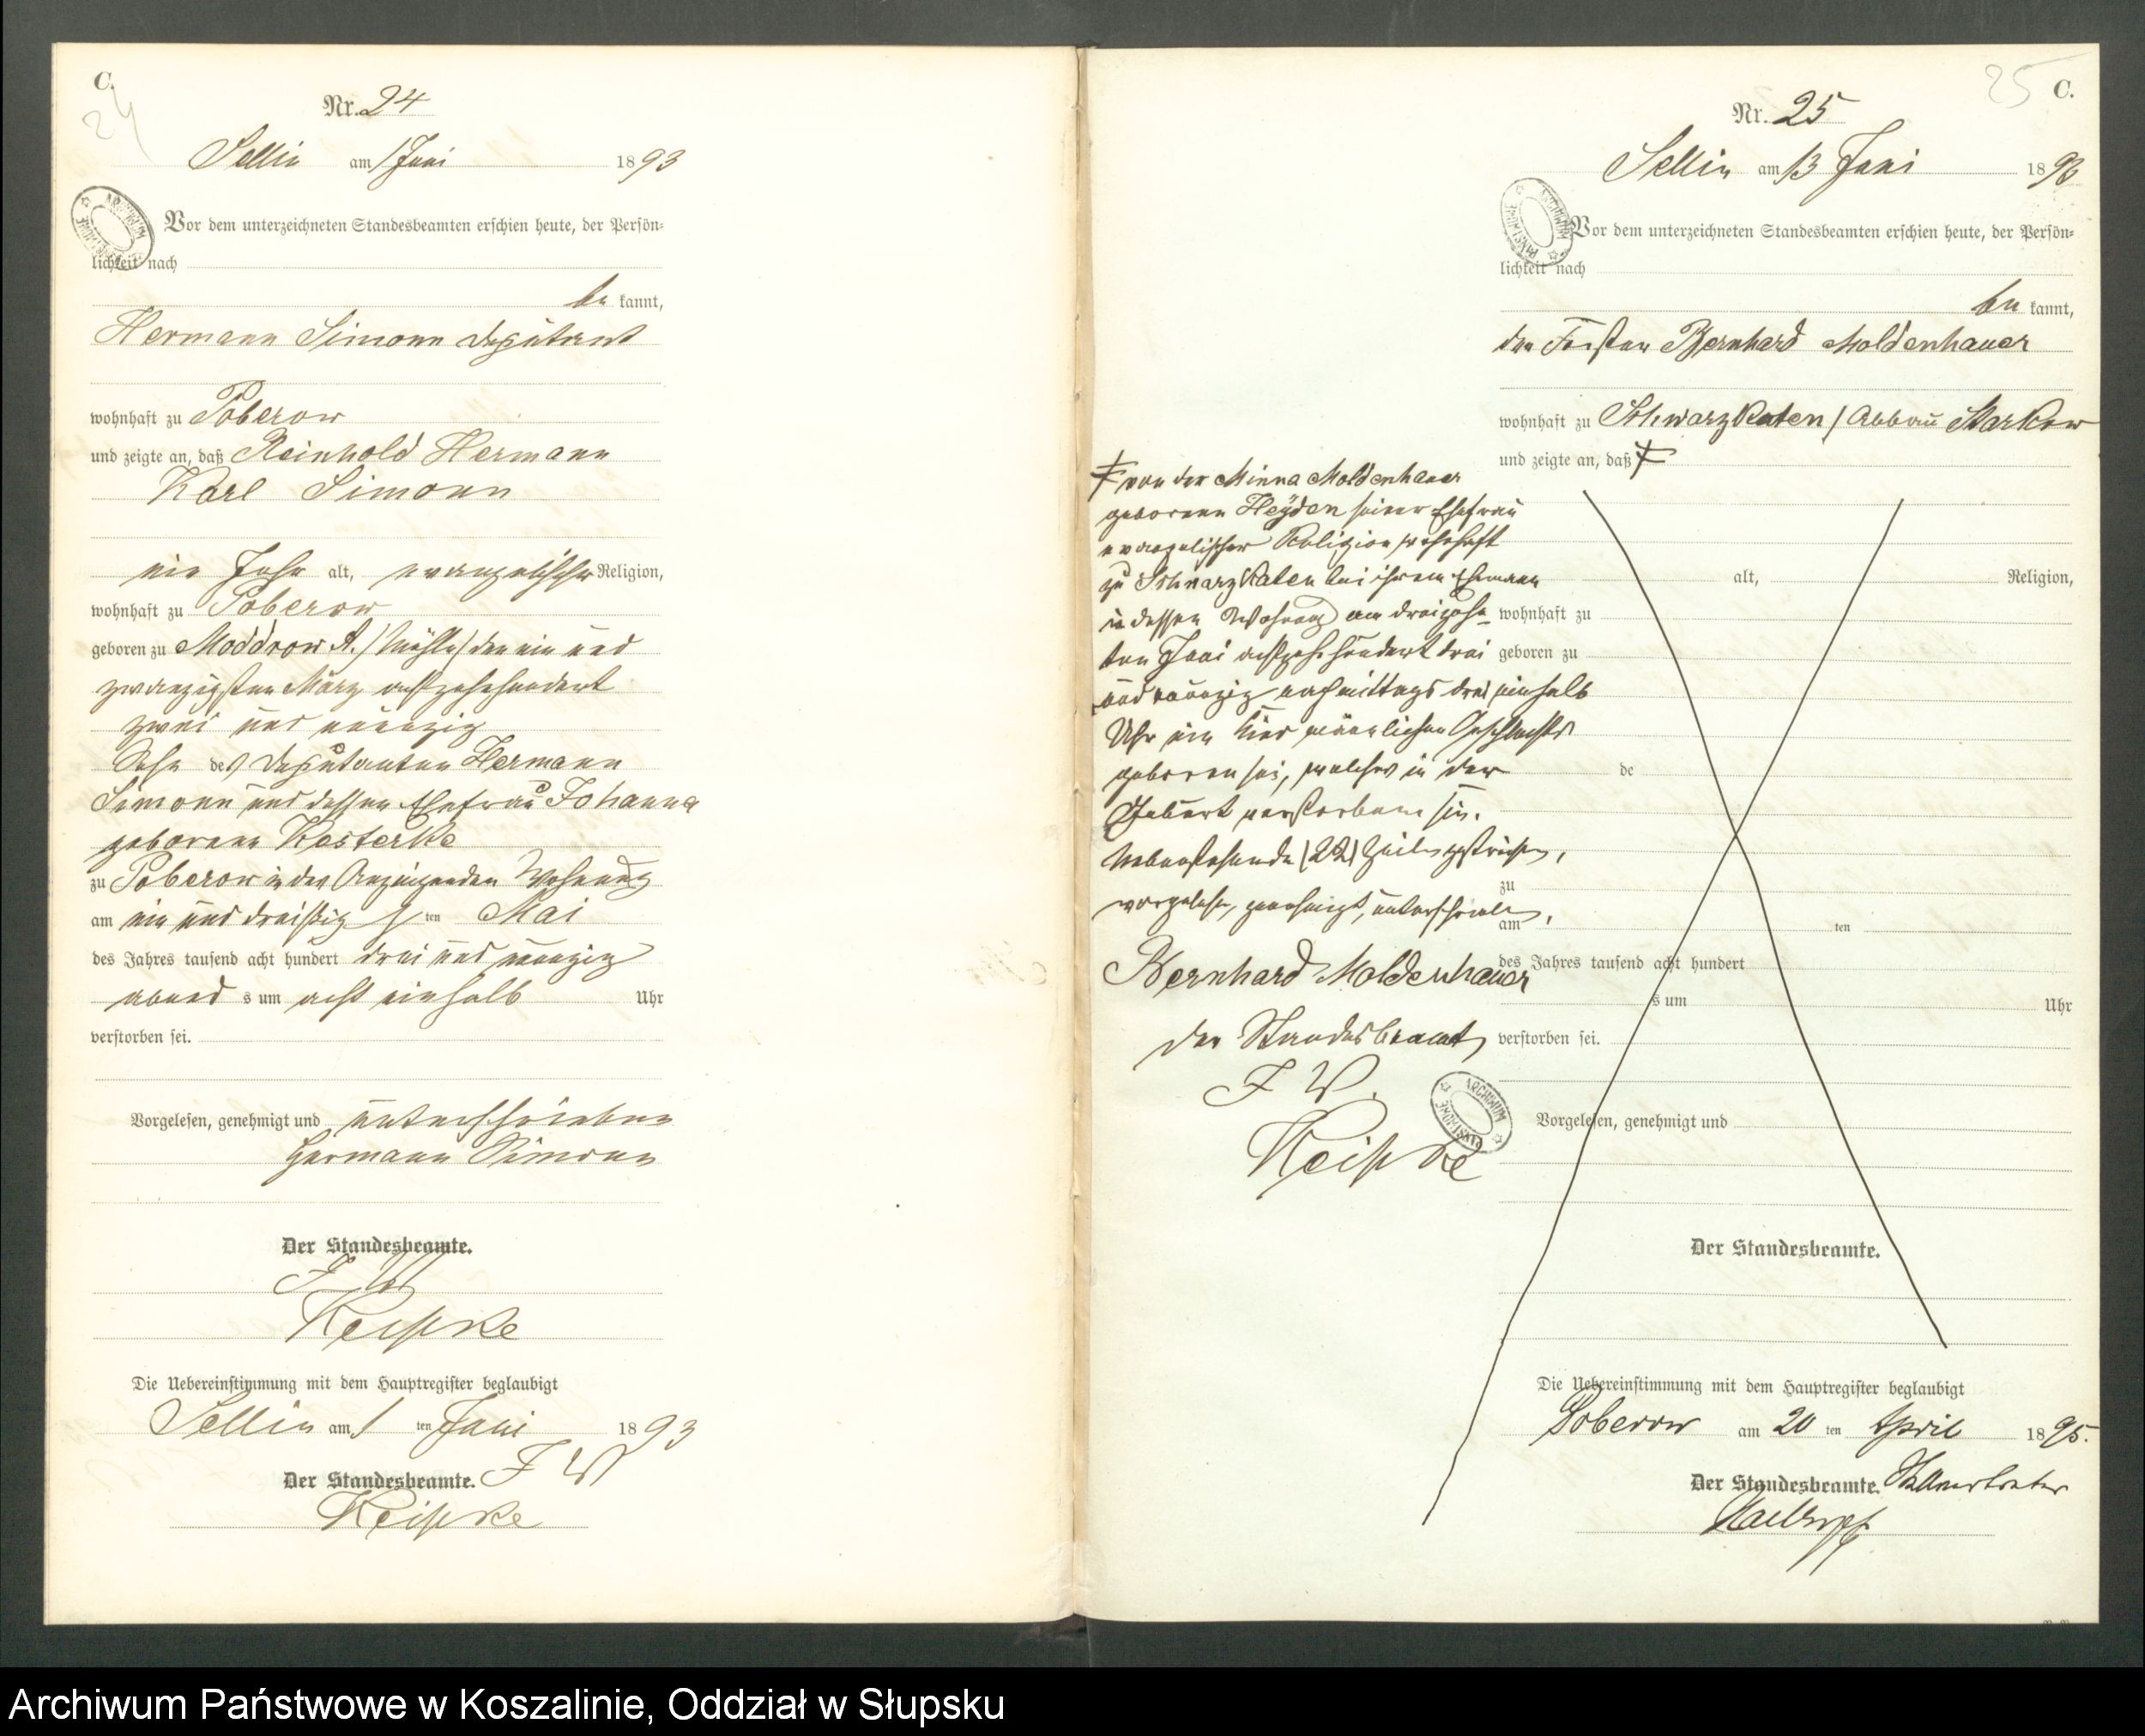 C.
24
Nr. 24
Sellin am 1 Juni 1893
Vor dem unterzeichneten Standesbeamten erschien heute, der Persön-
lichkeit nach
be kannt,
Hermann Simonn Deputant
wohnhaft zu Poberow
und zeigte an, daß Reinhold Hermann
Karl Simonn
ein Jahr alt, evangelischer Religion,
wohnhaft zu Poberow
geboren zu Moddrow A./Mühle/ den ein und
zwanzigsten März achtzehnhundert
zwei und neunzig
Sohn des Deputanten Hermann
Simonn und dessen Ehefrau Johanna
geborene Kesterke
zu Poberow in des Anzeigenden Wohnung
am ein und dreißig ten Mai
des Jahres tausend acht hundert drei und neunzig
abend s um acht einhalb Uhr
verstorben sei.
Vorgelesen, genehmigt und unterschrieben
Hermann Simonn
Der Standesbeamte.
F W
Keipke
Die Uebereinstimmung mit dem Hauptregister beglaubigt
Sellin am 1 ten Juni 1893
Der Standesbeamte. F W
Keipke
25 C.
Nr. 25
Sellin am 13 Juni 1893
Vor dem unterzeichneten Standesbeamten erschien heute, der Persön-
lichkeit nach
be kannt,
der Förster Bernhard Moldenhauer
wohnhaft zu Schwarzkaten / Abbau Starkow
und zeigte an, daß
von der Minna Moldenhauer
geborene Heyden seiner Ehefrau
evangelischer Religion wohnhaft
zu Schwarzkaten bei ihrem Ehemann
in dessen Wohnung am dreizehn
ten Juni achtzehnhundert drei
und neunzig nachmittags drei einhalb
Uhr ein Kind männlichen Geschlechts
geboren sei, welches in der
Geburt verstorben sei.
Nebenstehende (22) Zeilen gestrichen,
vorgelesen, genehmigt, unterschrieben,
Bernhard Moldenhauer
Der Standesbeamte
F W.
Keipke
alt, Religion,
wohnhaft zu
geboren zu
de
zu
am ten
des Jahres tausend acht hundert
s um Uhr
verstorben sei.
Vorgelesen, genehmigt und
Der Standesbeamte.
Die Uebereinstimmung mit dem Hauptregister beglaubigt
Poberow am 20 ten April 1895.
Der Standesbeamte.
Archiwum Państwowe w Koszalinie, Oddział w Słupsku